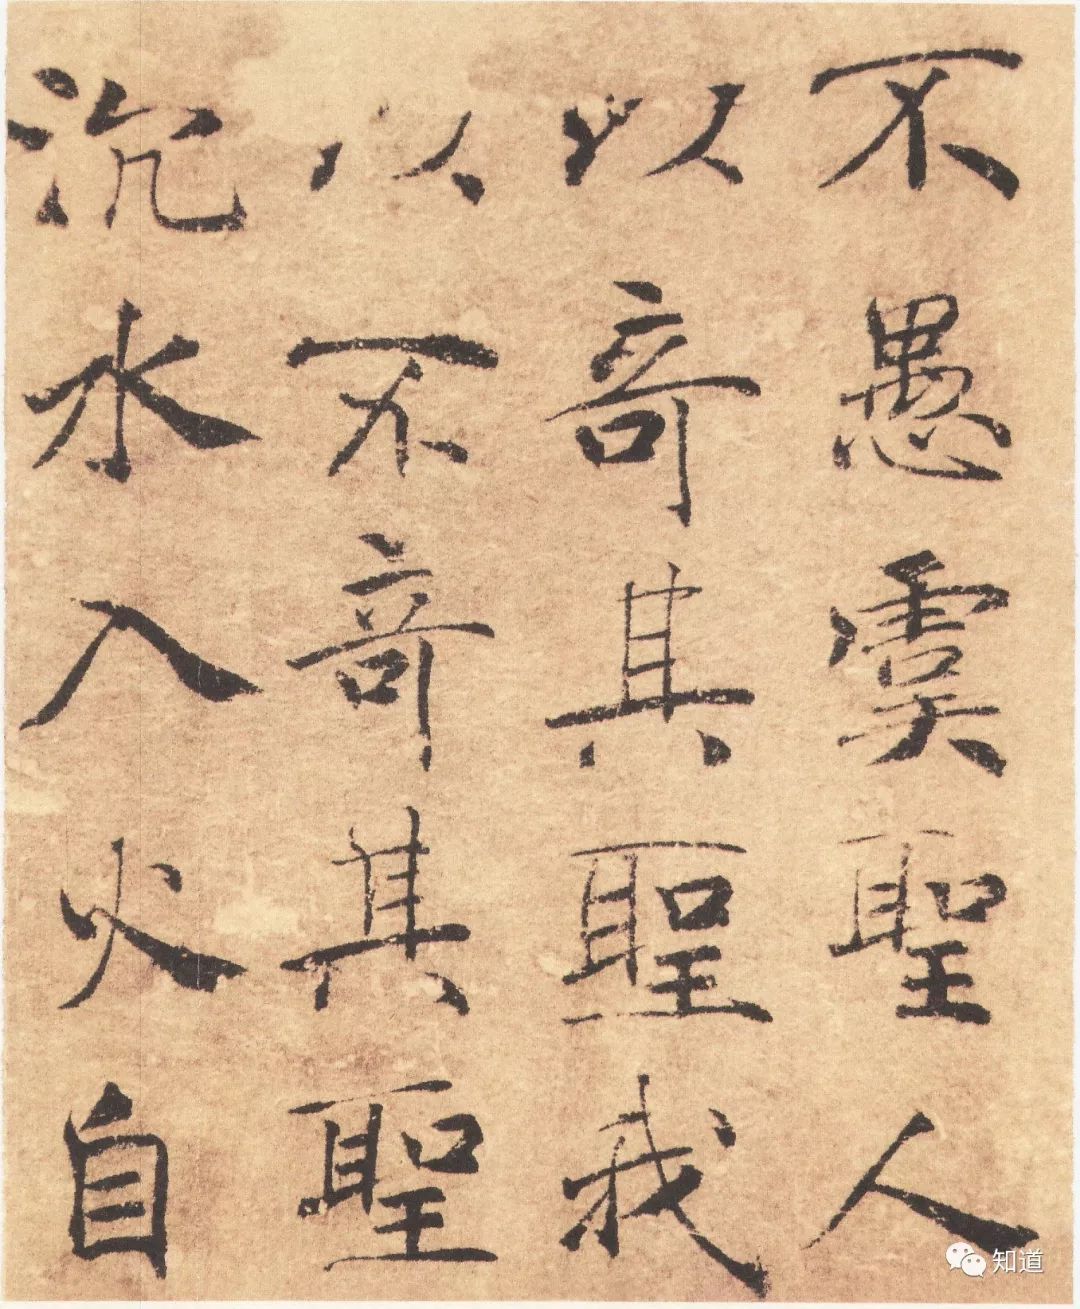 不愚虞聖人
以奇其聖我
以不奇其聖
沉水入火自
知道